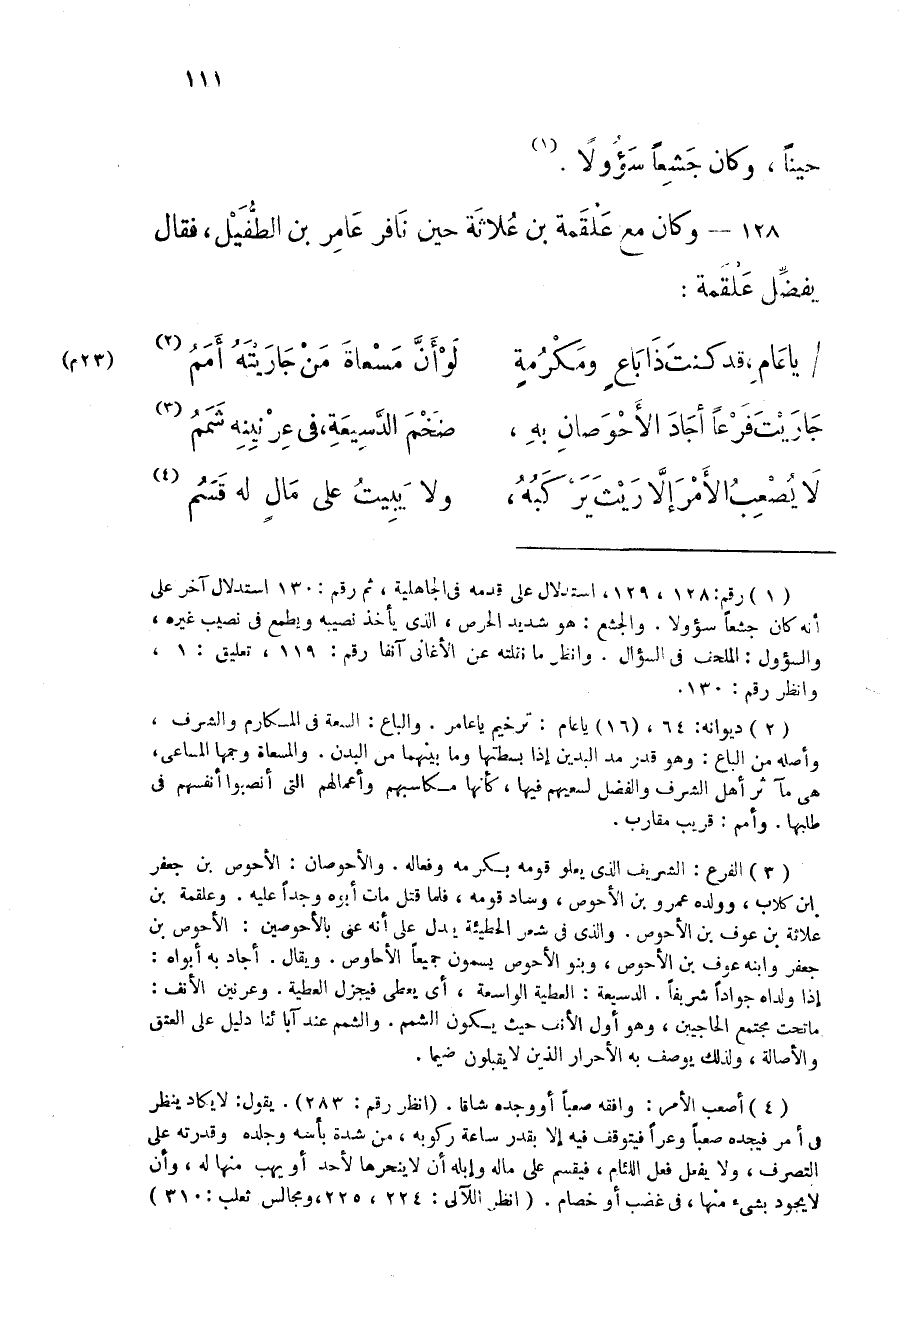 ١١١
حيناً ، وكان جَشِعاً سَؤُولًا . (١)
١٢٨ — وكان مع عَلْقَمة بن عُلاثَة حين نَافر عَامِر بن الطُّفَيْل ، فقال
يفضِّل عَلْقمة :
/ ياعَامِ ، قد كنتَ ذَا بَاعٍ ومَكْرُمةٍ لَوْ أَنَّ مَسْعاةَ مَنْ جَارَيْتَهُ أَمَمُ (٢) (٢٣م)
جَارَيْتَ فَرْعاً أجَادَ الأَحْوَصَانِ بِهِ ، ضَخْمَ الدَّسِيعَةِ ، فى عِرْنينِه شَمَمُ (٣)
لَا يُصْعِبُ الأَمْرَ إلَّا رَيْثَ يَرْكَبُهُ ، ولا يَبِيتُ على مَالٍ له قَسَمُ (٤)
( ١ ) رقم : ١٢٨ ، ١٢٩ ، استدلال على قدمه فى الجاهلية ، ثم رقم : ١٣٠ استدلال آخر على
أنه كان جشعاً سؤولا . والجشع : هو شديد الحرص ، الذى يأخذ نصيبه ويطمع فى نصيب غيره ،
والسؤول : الملحف فى السؤال . وانظر ما نقلته عن الأغانى آنفا رقم : ١١٩ ، تعليق : ١ ،
وانظر رقم : ١٣٠ .
( ٢ ) ديوانه : ٦٤ ، (١٦) ياعام : ترخيم ياعامر . والباع : السعة فى المكارم والشرف ،
وأصله من الباع : وهو قدر مد اليدين إذا بسطتها وما بينهما من البدن . والمسعاة وجمها المساعى ،
هى مآ ثر أهل الشرف والفضل لسعيهم فيها ، كأنها مكاسبهم وأعمالهم التى أنصبوا أنفسهم فى
طلبها . وأمم : قريب مقارب .
( ٣ ) الفرع : الشريف الذى يعلو قومه بكرمه وفعاله . والأحوصان : الأحوص بن جعفر
ابن كلاب ، وولده عمرو بن الأحوص ، وساد قومه ، فلما قتل مات أبوه وجداً عليه . وعلقمة بن
علاثة بن عوف بن الأحوص . والذى فى شعر الحطيئة يدل على أنه عنى بالأحوصين : الأحوص بن
جعفر وابنه عوف بن الأحوص ، وبنو الأحوص يسمون جميعاً الأحاوص . ويقال . أجاد به أبواه :
إذا ولداه جواداً شريفاً . الدسيعة : العطية الواسعة ، أى يعطى فيجزل العطية . وعرنين الأنف :
ماتحت مجتمع الحاجبين ، وهو أول الأنف حيث يكون الشمم . والشمم عند آبائنا دليل على العتق
والأصالة ، ولذلك يوصف به الأحرار الذين لا يقبلون ضيما .
( ٤ ) أصعب الأمر : وافقه صعباً أووجده شاقا . (انظر رقم : ٢٨٣) . يقول : لايكاد ينظر
فى أمر فيجده صعباً وعراً فيتوقف فيه إلا بقدر ساعة ركوبه ، من شدة بأسه وجلده وقدرته على
التصرف ، ولا يفعل فعل اللئام ، فيقسم على ماله وإبله أن لاينحرها لأحد أو يهب منها له ، وأن
لايجود بشىء منها ، فى غضب أو خصام . ( انظر اللآلى : ٢٢٤ ، ٢٢٥ ، ومجالس ثعلب : ٣١٠ )